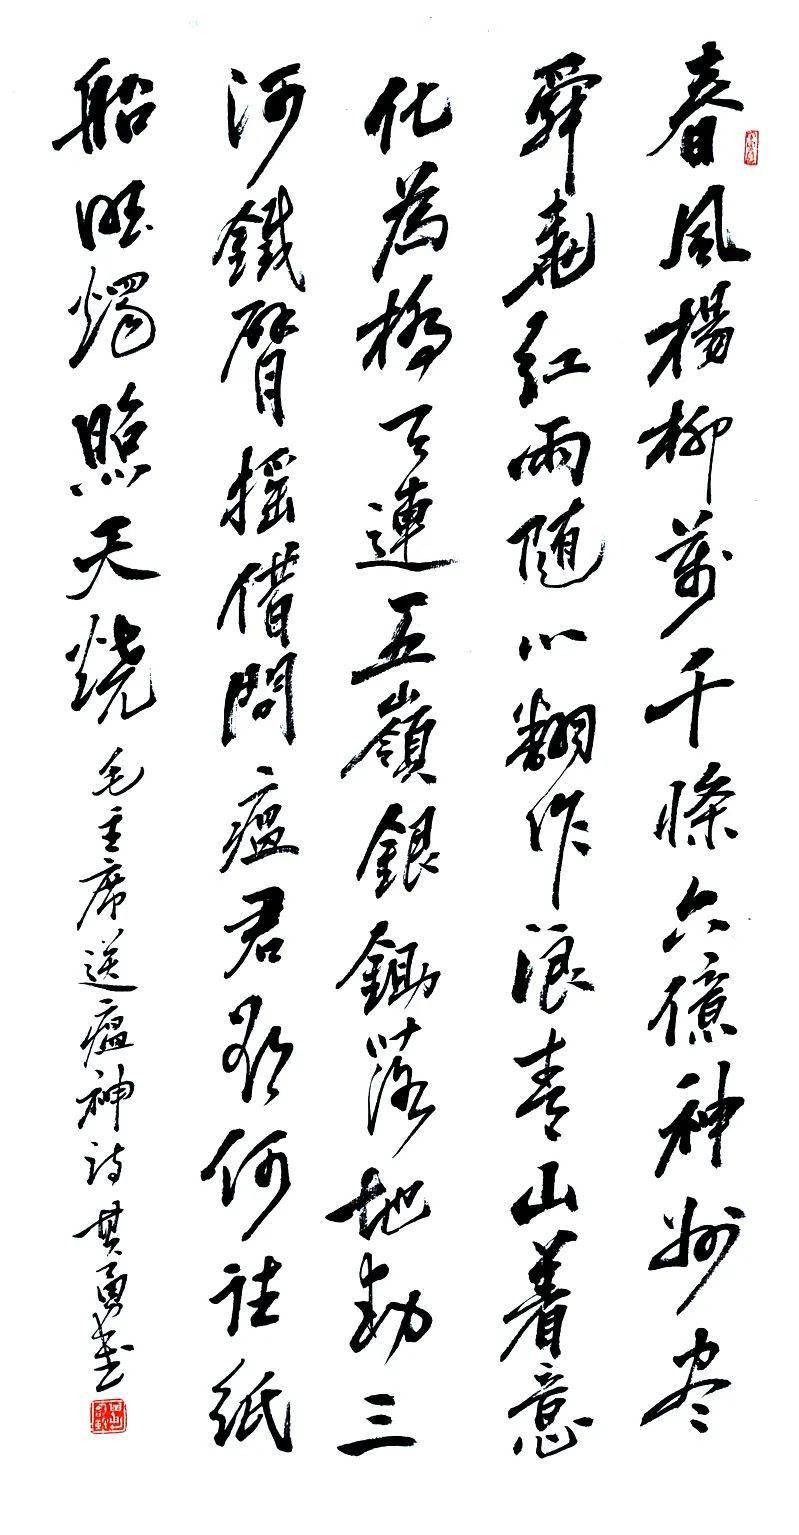 春風楊柳萬千條六億神州尽
舜堯紅雨随心翻作浪青山着意
化為橋天連五嶺銀鋤落地動三
河鐵臂摇借問瘟君欲何往紙
船明燭照天燒
毛主席送瘟神詩其勇書